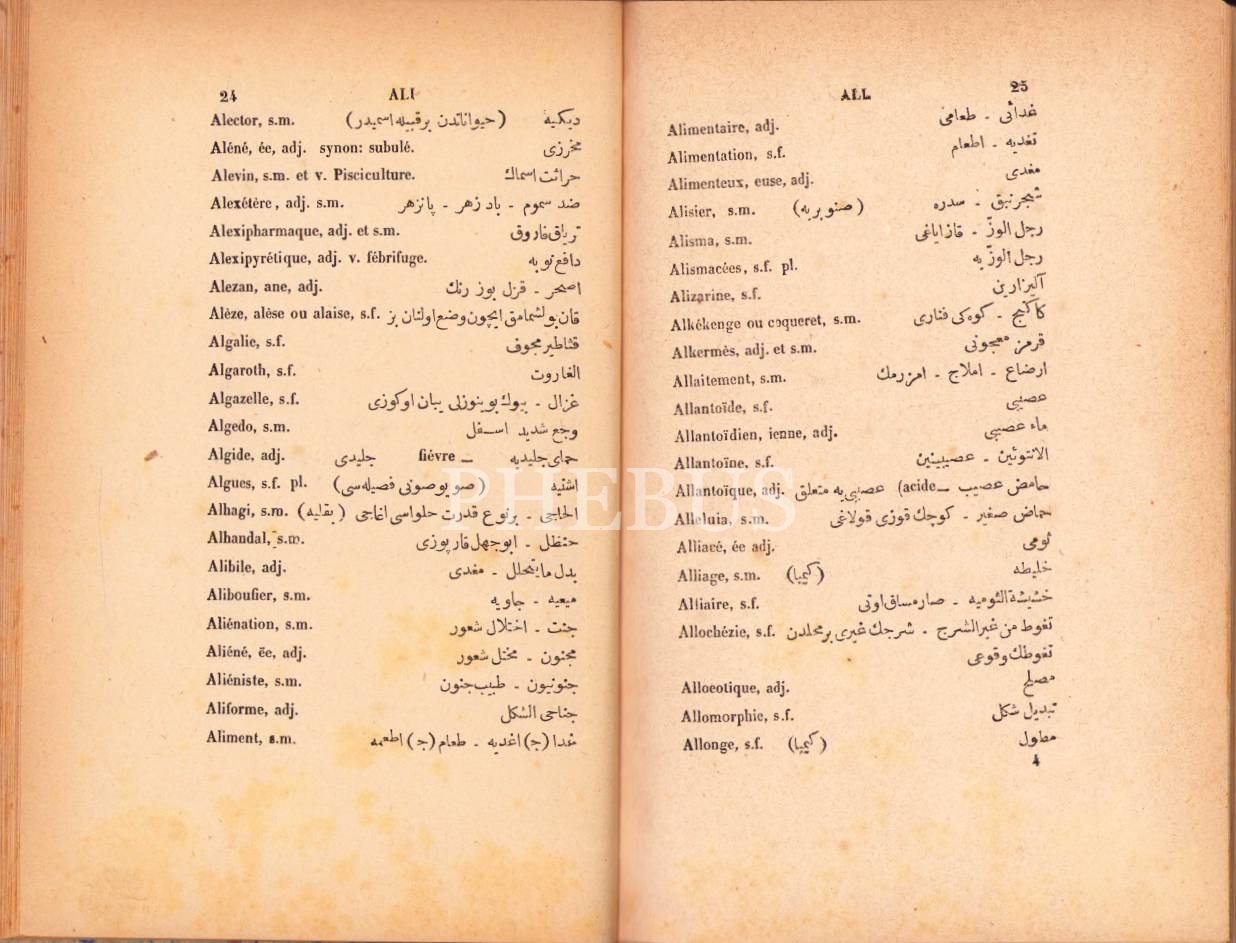 24 ALI
Alector, s.m. (حیواناتدن بر قبیله اسمیدر) دیکیه
Aléné, ée, adj. synon: subulé. مخرزی
Alevin, s.m. et v. Pisciculture. حرائت اسماك
Alexétère, adj. s.m. ضد سموم ـ باد زهر ـ پانزهر
Alexipharmaque, adj. et s.m. تریاق فاروق
Alexipyrétique, adj. v. fébrifuge. دافع نوبه
Alezan, ane, adj. اصحر ـ قزل بوز رنك
Alèze, alèse ou alaise, s.f. قان بولشمامق ایچون وضع اولنان بز
Algalie, s.f. قثاطیر مجوف
Algaroth, s.f. الغاروت
Algazelle, s.f. غزال ـ بیوك بوینوزلی یبان اوکوزی
Algedo, s.m. وجع شدید اسفل
Algide, adj. جلیدی fiévre — حمای جلیدیه
Algues, s.f. pl. (صو یوصونی فصیله سی) اشنیه
Alhagi, s.m. الحاجی ـ برنوع قدرت حلواسی اغاجی (بقلیه)
Alhandal, s.m. حنظل ـ ابوجهل قارپوزی
Alibile, adj. بدل مایتحلل ـ مغدی
Aliboufier, s.m. میعیه ـ جاویه
Aliénation, s.m. جنت ـ اختلال شعور
Aliéné, ëe, adj. مجنون ـ مختل شعور
Aliéniste, s.m. جنونیون ـ طبیب جنون
Aliforme, adj. جناحی الشکل
Aliment, s.m. غدا (ج) اغدیه ـ طعام (ج) اطعمه
ALL 25
Alimentaire, adj. غدائی ـ طعامی
Alimentation, s.f. تغدیه ـ اطعام
Alimenteux, euse, adj. مغدی
Alisier, s.m. (صنوبریه) شجر نبق ـ سدره
Alisma, s.m. رجل الوزّ ـ قاز ایاغی
Alismacées, s.f. pl. رجل الوزّیه
Alizarine, s.f. آلیزارین
Alkékenge ou coqueret, s.m. کاکنج ـ کوه کی فناری
Alkermès, adj. et s.m. قرمز معجونی
Allaitement, s.m. ارضاع ـ املاج ـ امزرمك
Allantoïde, s.f. عصیبی
Allantoïdien, ienne, adj. ماء عصیبی
Allantoïne, s.f. الانتوئین ـ عصیبینین
Allantoïque, adj. حامض عصیب —acide) عصیبی یه متعلق
Alleluia, s.m. حماض صغیر ـ کوچك قوزی قولاغی
Alliacé, ée adj. ثومی
Alliage, s.m. (کیمیا) خلیطه
Alliaire, s.f. حشیشة الثومیه ـ صارمساق اوتی
Allochézie, s.f. تغوط من غیر الشرج ـ شرجك غیری بر محلدن
تغوطك وقوعی
Alloeotique, adj. مصلح
Allomorphie, s.f. تبدیل شکل
Allonge, s.f. (کیمیا) مطول
4
PHEBUS